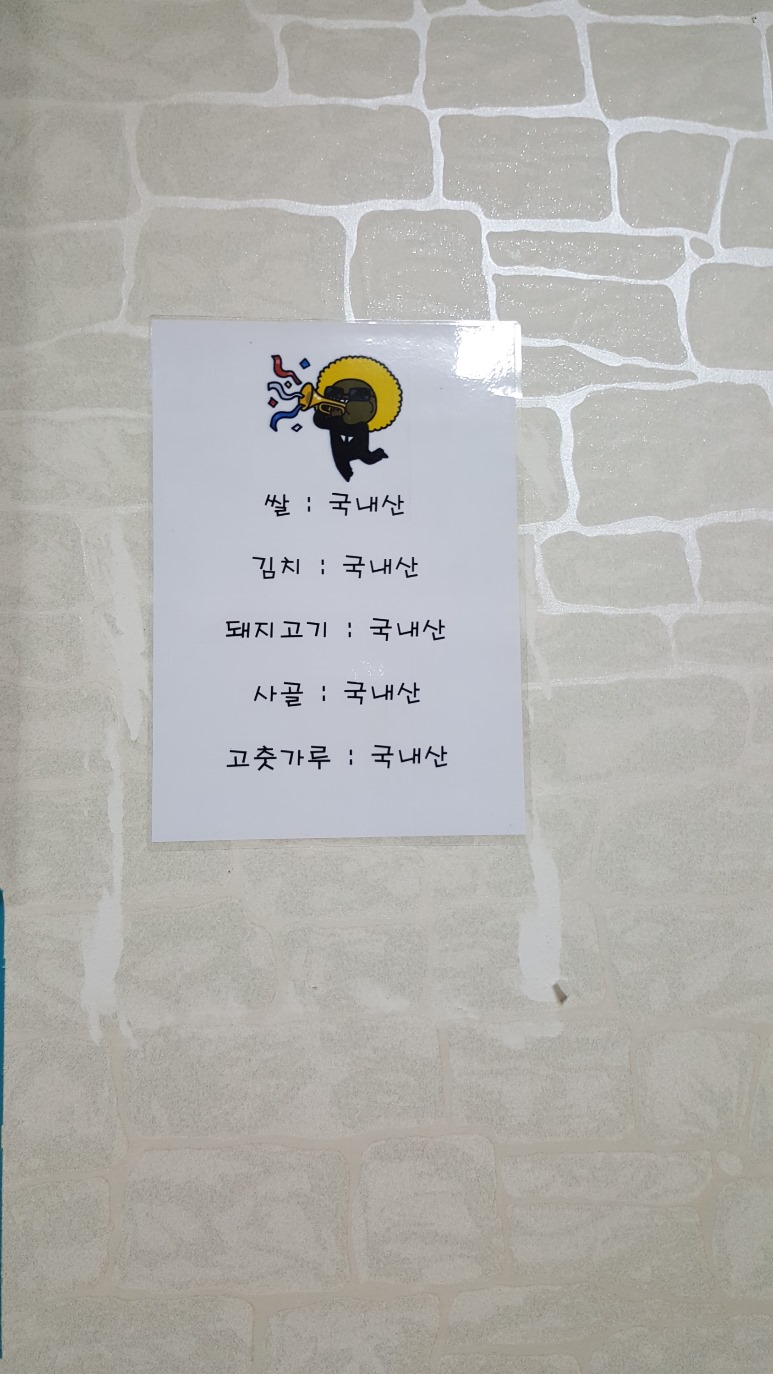 쌀 : 국내산
김치 : 국내산
돼지고기 : 국내산
사골 : 국내산
고춧가루 : 국내산